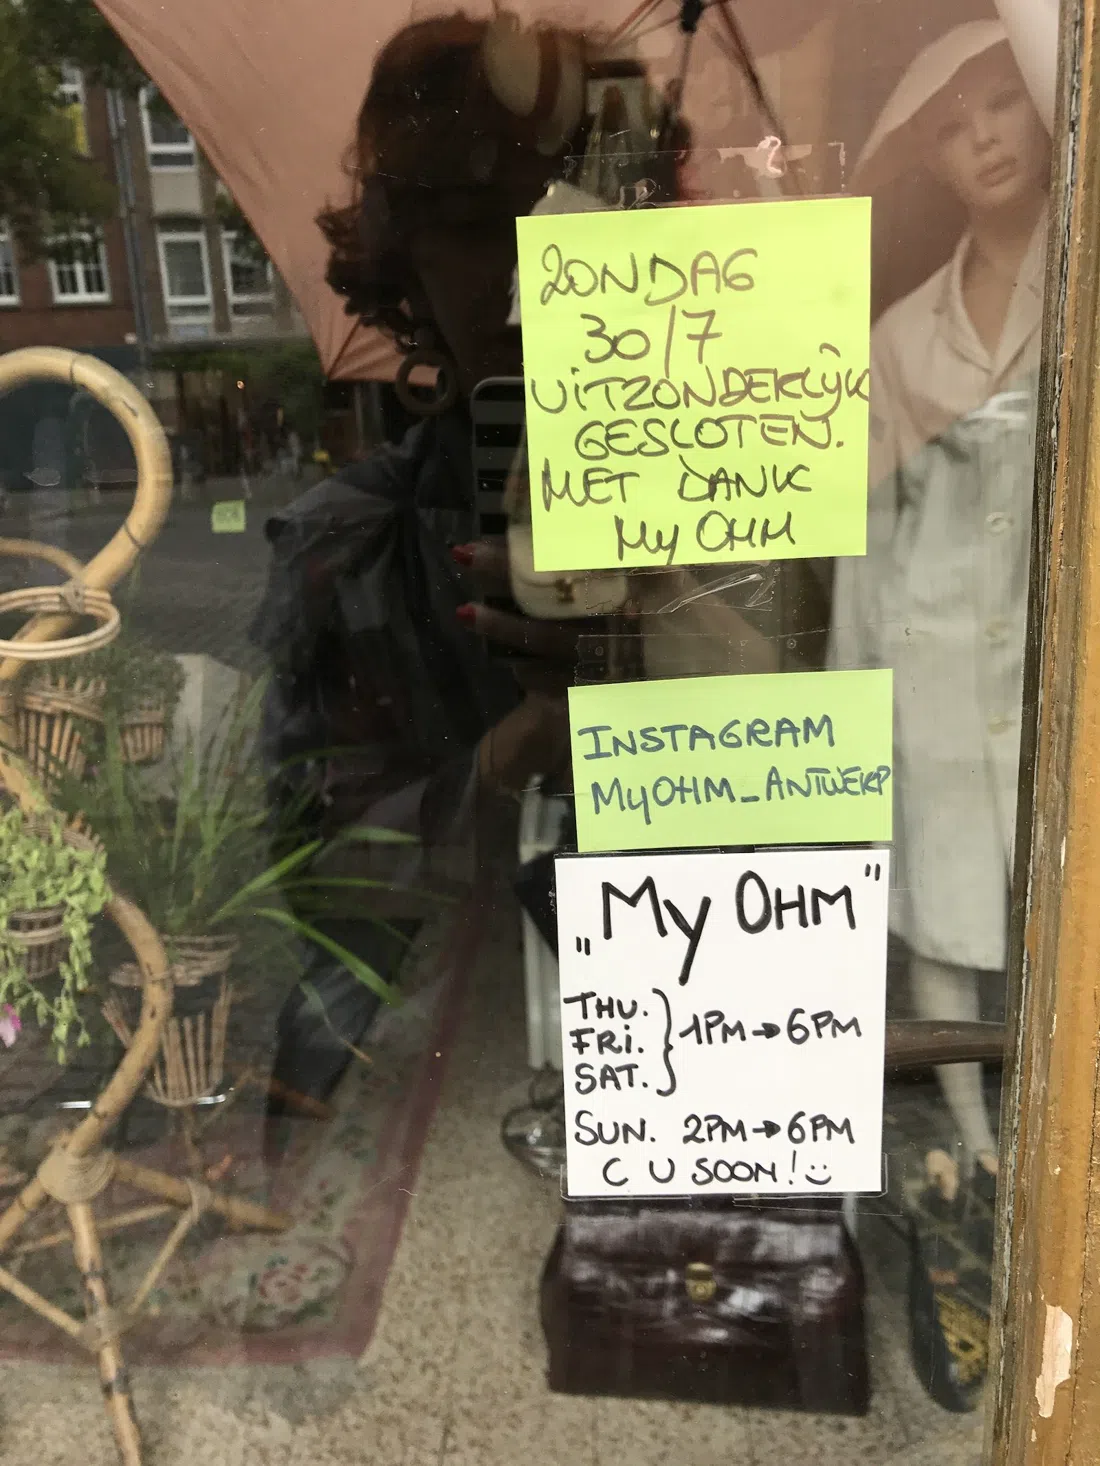 ZONDAG
30/7
UITZONDERLIJK
GESLOTEN.
MET DANK
My OHM
INSTAGRAM
MyOHM_ANTWERP
„My OHM"
THU.
FRI.
SAT.
} 1PM → 6PM
SUN. 2PM → 6PM
C U SOON! :)